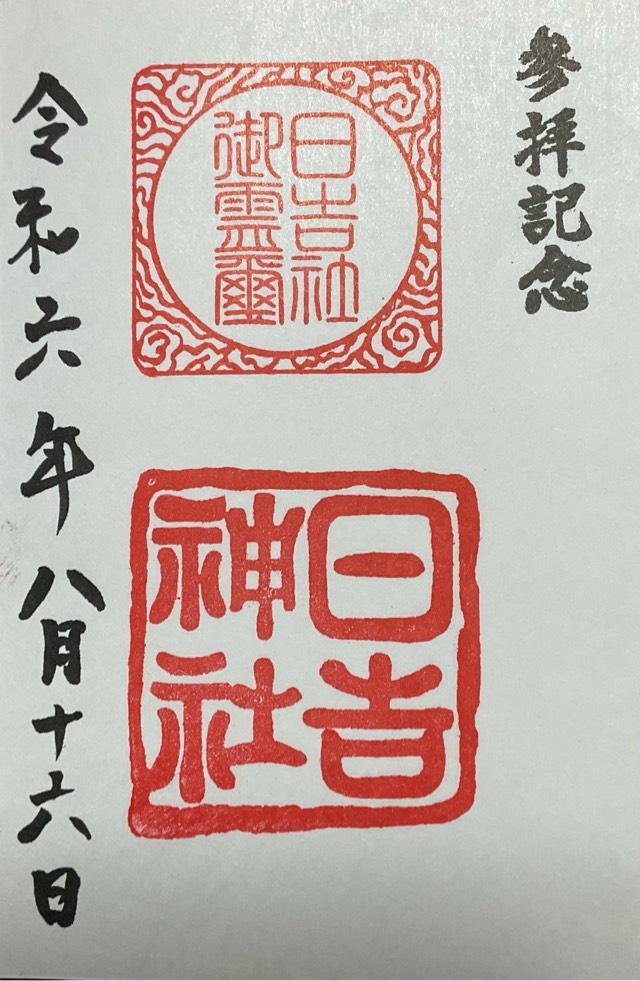 參拝記念
日吉社
御霊璽
日吉
神社
令和六年八月十六日